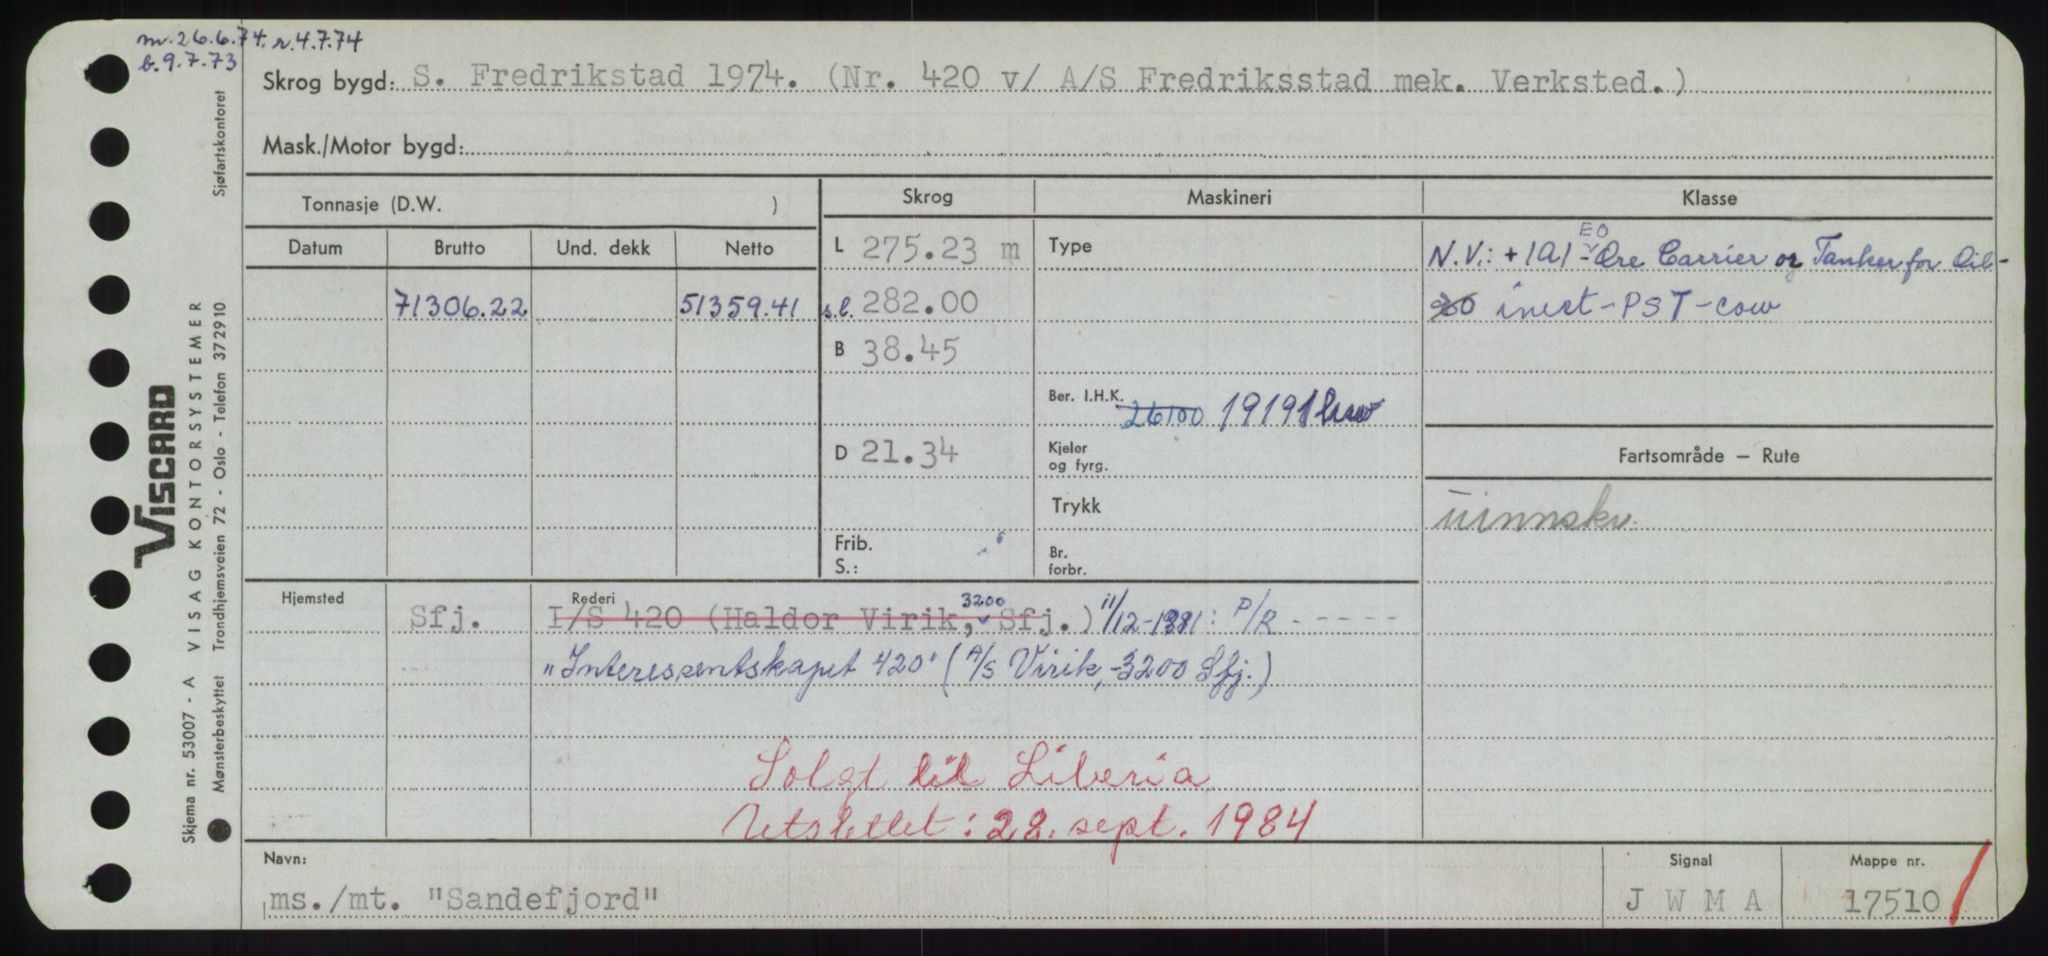 m. 26.6.74. r. 4.7.74
b. 9.7.73
Skrog bygd: S. Fredrikstad 1974. (Nr. 420 v/ A/S Fredriksstad mek. Verksted.)
Mask./Motor bygd:
Tonnasje (D.W. )
Skrog
Maskineri
Klasse
Datum
Brutto
Und. dekk
Netto
71306.22
51359.41
L 275.23 m
s.l. 282.00
B 38.45
D 21.34
Frib.
S.:
Type
Ber. I.H.K. 26100 19191 hw
Kjeler
og fyrg.
Trykk
Br.
forbr.
EO
N.V.: + 1A1 - Ore Carrier or Tanker for Oil -
inert - PST - cow
Fartsområde – Rute
uinnskr.
Hjemsted
Sfj.
Rederi
I/S 420 (Haldor Virik, 3200 Sfj.) 11/12-1981: P/R - - - - -
"Interessentskapet 420" (A/S Virik, -3200 Sfj.)
Solgt til Liberia
Utslettet: 28. sept. 1984
Navn:
ms./mt. "Sandefjord"
Signal
J W M A
Mappe nr.
17510
VISCARD
Skjema nr. 53007 - A VISAG KONTORSYSTEMER
Mønsterbeskyttet Trondhjemsveien 72 - Oslo - Telefon 372910 Sjøfartskontoret